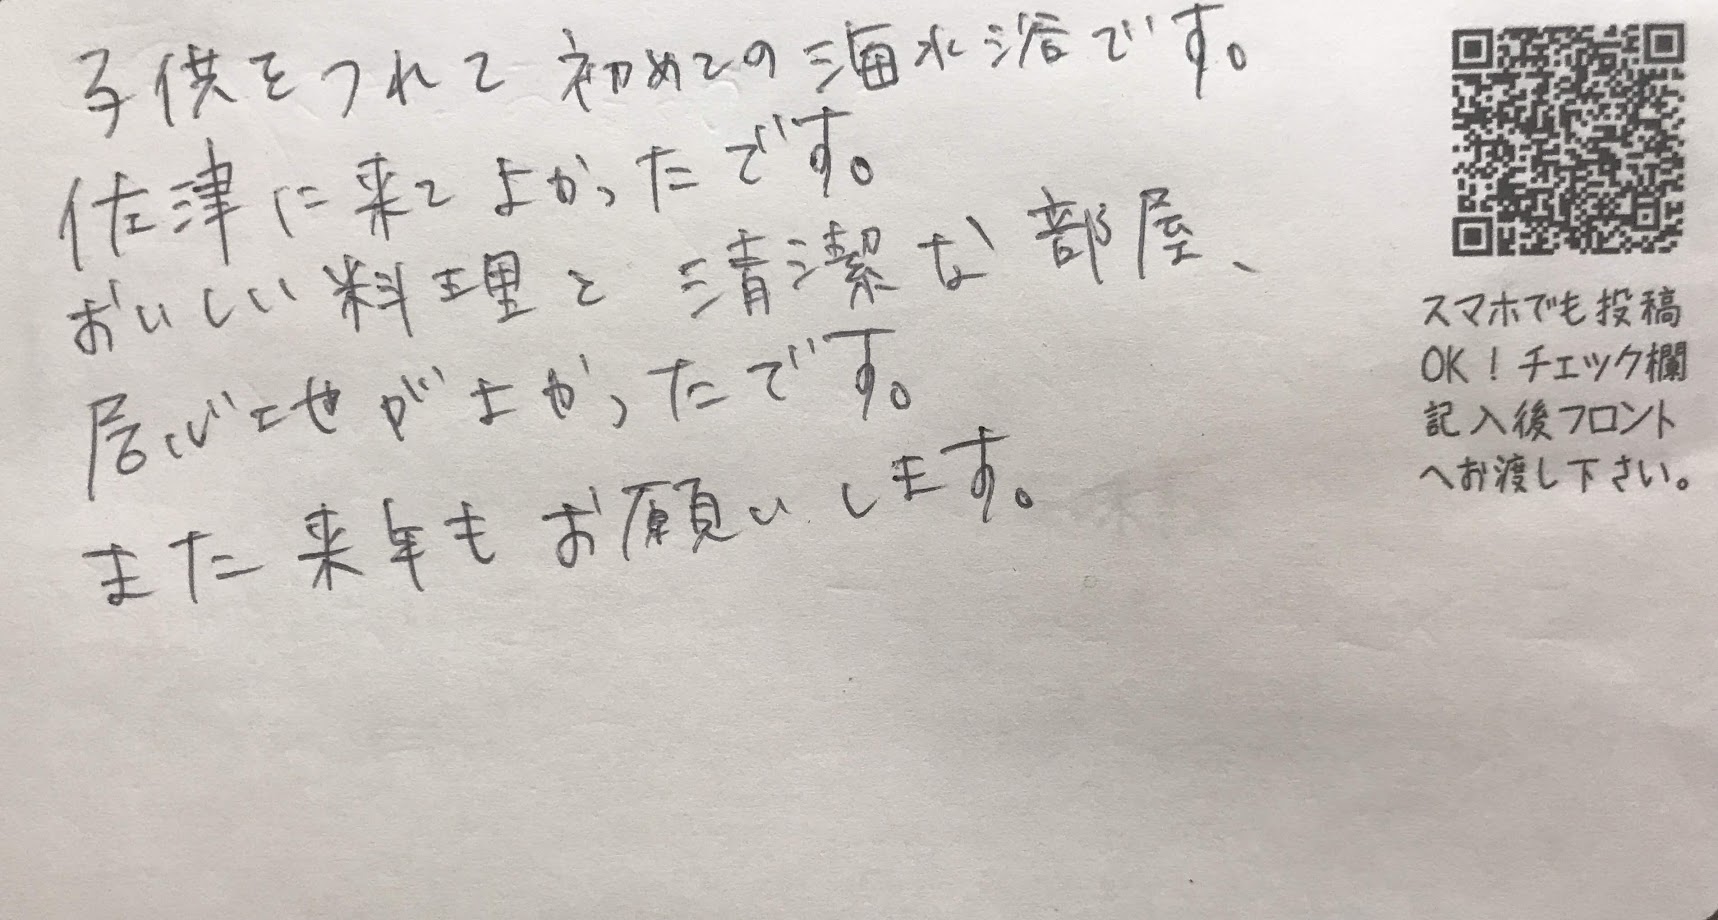 子供をつれて初めての海水浴です。
佐津に来てよかったです。
おいしい料理と清潔な部屋、
居心地がよかったです。
また来年もお願いします。
スマホでも投稿
OK!チェック欄
記入後フロント
へお渡し下さい。